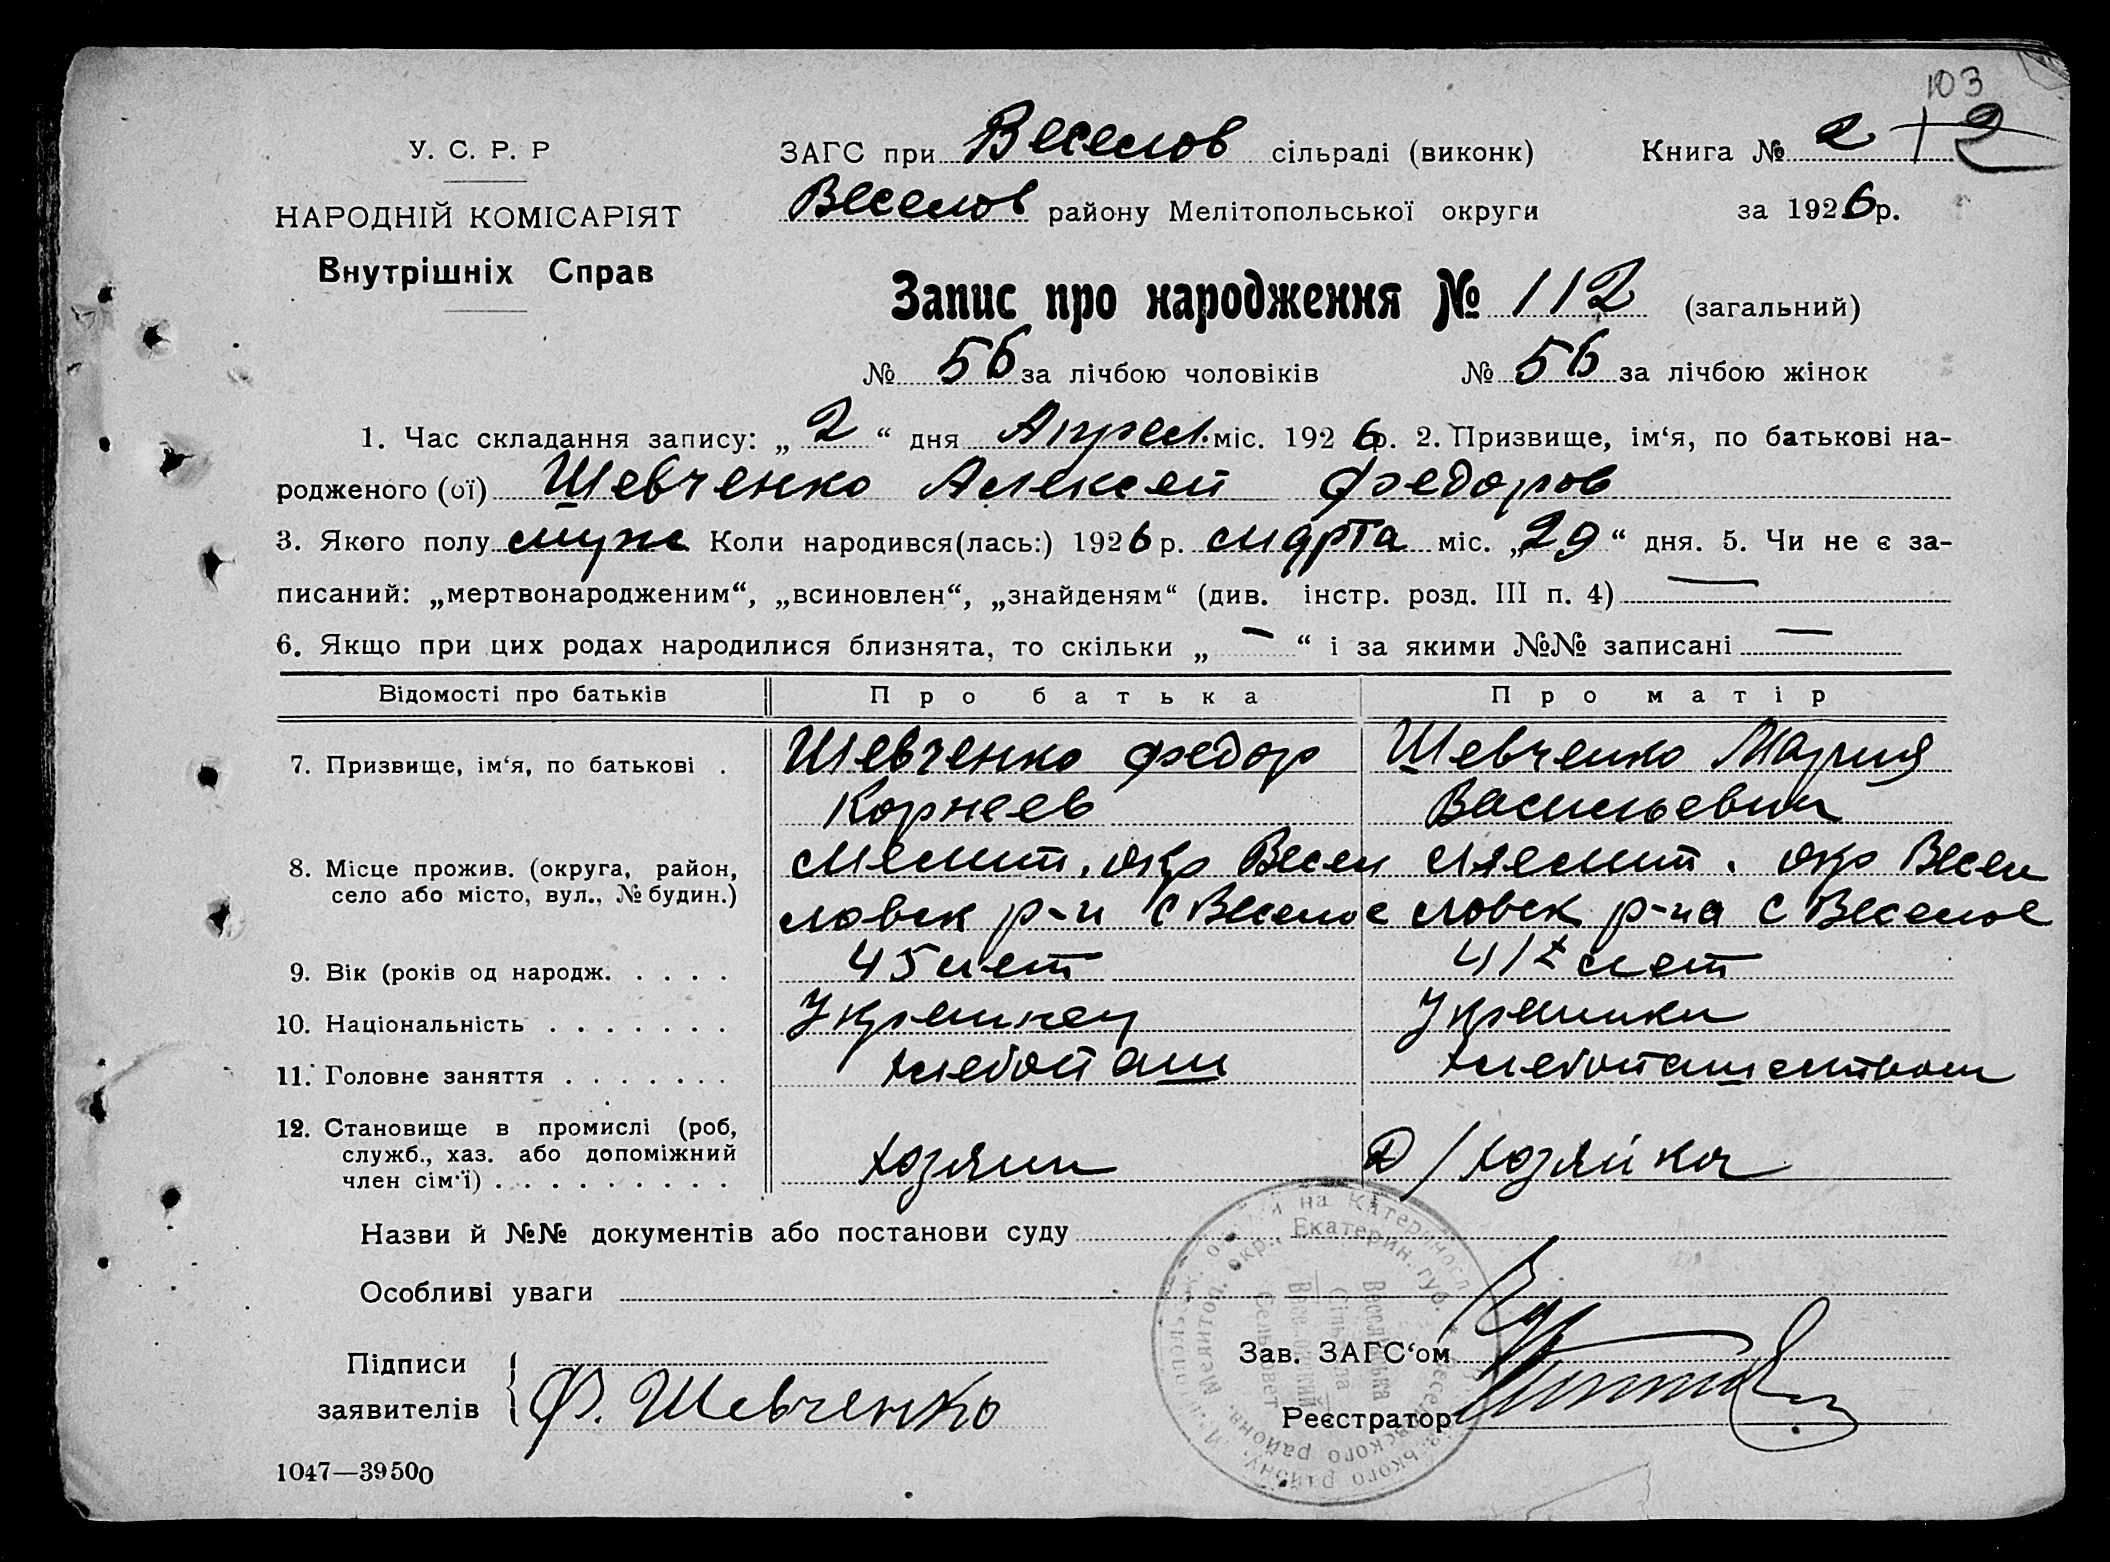 103
У. С. Р. Р
НАРОДНІЙ КОМІСАРІЯТ
Внутрішніх Справ
ЗАГС при Веселов сільраді (виконк) Книга № 2
Веселов району Мелітопольської округи за 1926р.
Запис про народження № 112 (загальний)
№ 56 за лічбою чоловіків № 56 за лічбою жінок
1. Час складання запису: „ 2 “ дня Апрел міс. 1926р. 2. Призвище, ім‘я, по батькові на-
родженого (ої) Шевченко Алексей Федоров
3. Якого полу муж Коли народився(лась:) 1926р. марта міс. „29“ дня. 5. Чи не є за-
писаний: „мертвонародженим“, „всиновлен“, „знайденям“ (див. інстр. розд. III п. 4) —
6. Якщо при цих родах народилися близнята, то скільки „ — “ і за якими №№ записані —
Відомості про батьків Про батька Про матір
7. Призвище, ім‘я, по батькові . Шевченко Федор Шевченко Мария
Корнеев Васильевна
8. Місце прожив. (округа, район, Мелит. окр Весел Мелит. окр Весел
село або місто, вул., № будин.) ловск р-н с Веселое ловск р-на с Веселое
9. Вік (років од народж. . . . . 45 лет 41 лет
10. Національність . . . . . . . Украинец Украинка
11. Головне заняття . . . . . . . хлебопаш хлебопашеством
12. Становище в промислі (роб,
служб., хаз. або допоміжний хозяин Д/хозяйка
член сім‘ї) . . . . . . . . .
Назви й №№ документів або постанови суду
Особливі уваги
Підписи
заявителів Ф. Шевченко
Зав. ЗАГС‘ом
Реєстратор
1047—39500